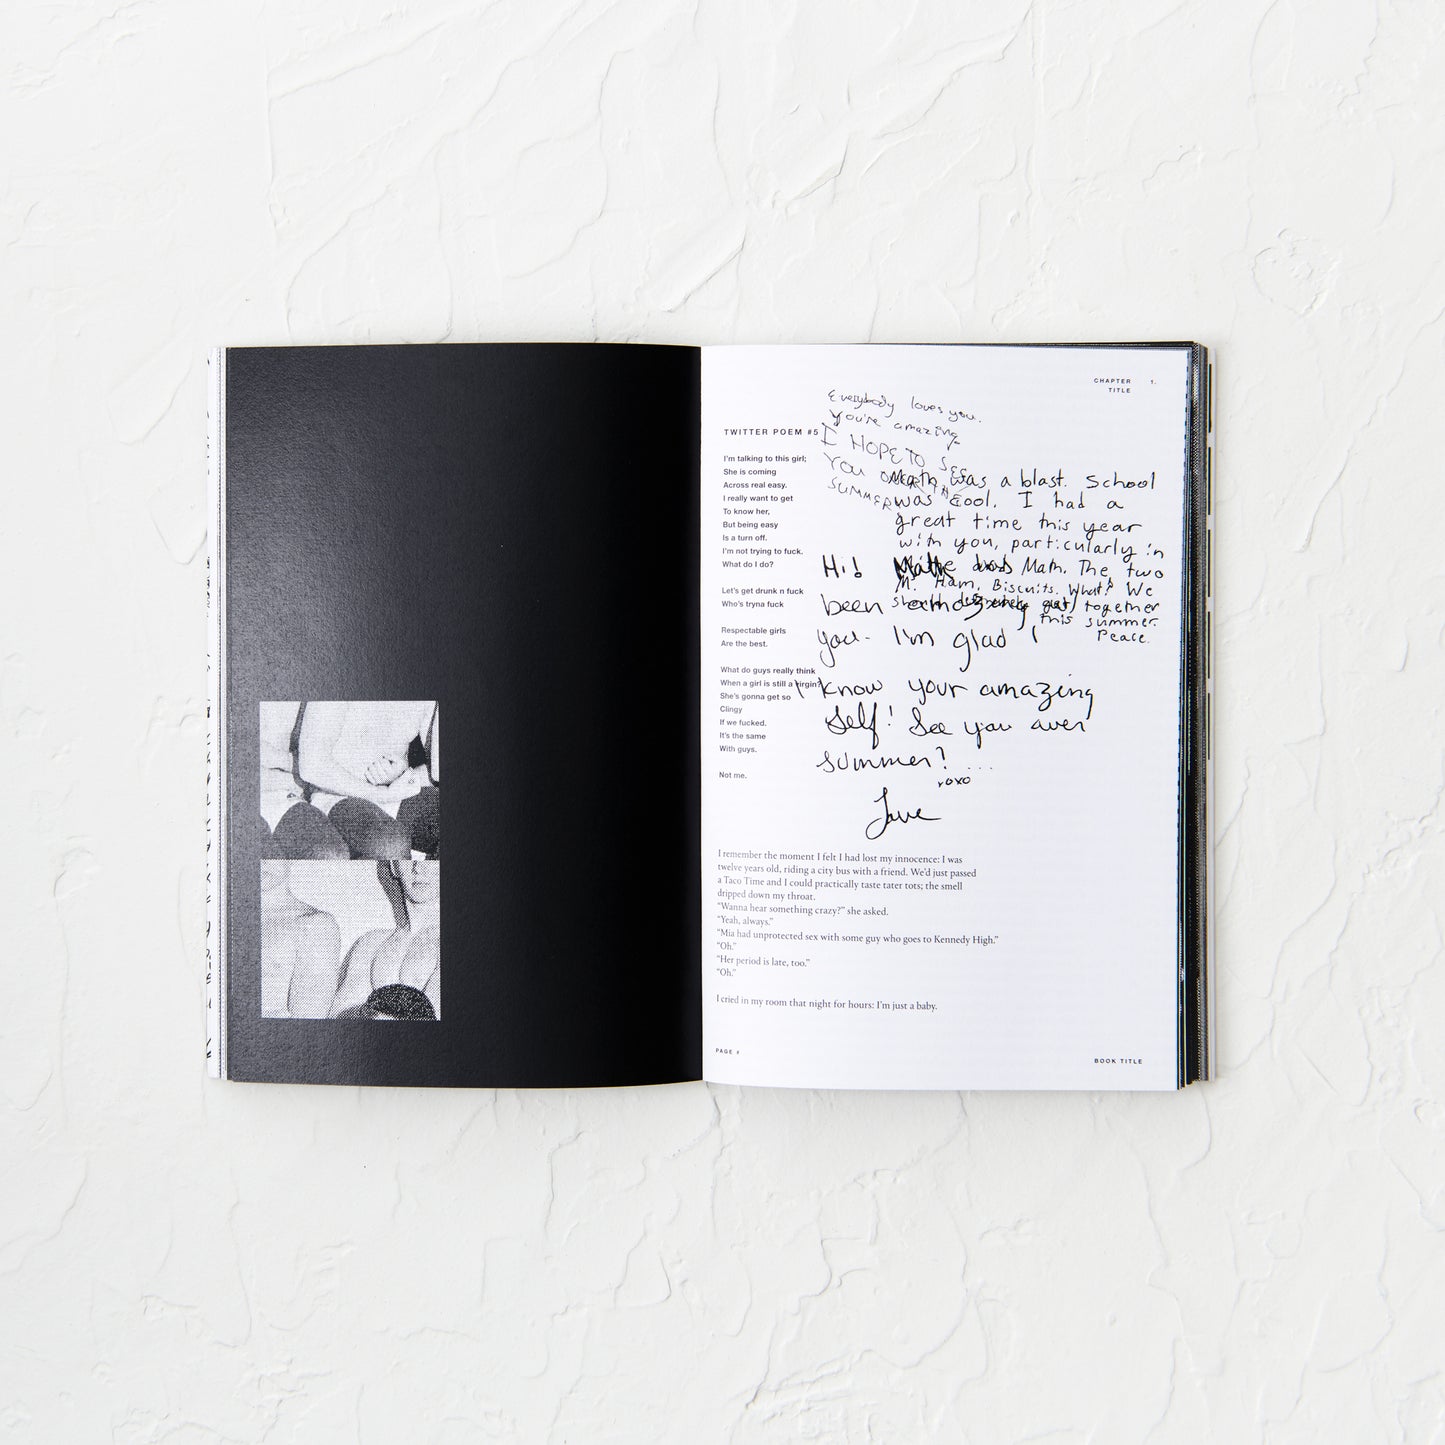 CHAPTER 1.
TITLE
TWITTER POEM #5
I'm talking to this girl;
She is coming
Across real easy.
I really want to get
To know her,
But being easy
Is a turn off.
I'm not trying to fuck.
What do I do?
Let's get drunk n fuck
Who's tryna fuck
Respectable girls
Are the best.
What do guys really think
When a girl is still a virgin?
She's gonna get so
Clingy
If we fucked.
It's the same
With guys.
Not me.
Everybody loves you.
You're amazing
I HOPE TO SEE
YOU OVER THE
SUMMER
Math was a blast. School
was cool. I had a
great time this year
with you, particularly in
Math. The two
M. Ham, Biscuits. What? We
should get together
this summer.
Peace.
Hi!
been amazing
you. I'm glad I
know your amazing
self! See you over
summer! ...
xoxo
I remember the moment I felt I had lost my innocence: I was
twelve years old, riding a city bus with a friend. We'd just passed
a Taco Time and I could practically taste tater tots; the smell
dripped down my throat.
"Wanna hear something crazy?" she asked.
"Yeah, always."
"Mia had unprotected sex with some guy who goes to Kennedy High."
"Oh."
"Her period is late, too."
"Oh."
I cried in my room that night for hours: I'm just a baby.
PAGE #
BOOK TITLE